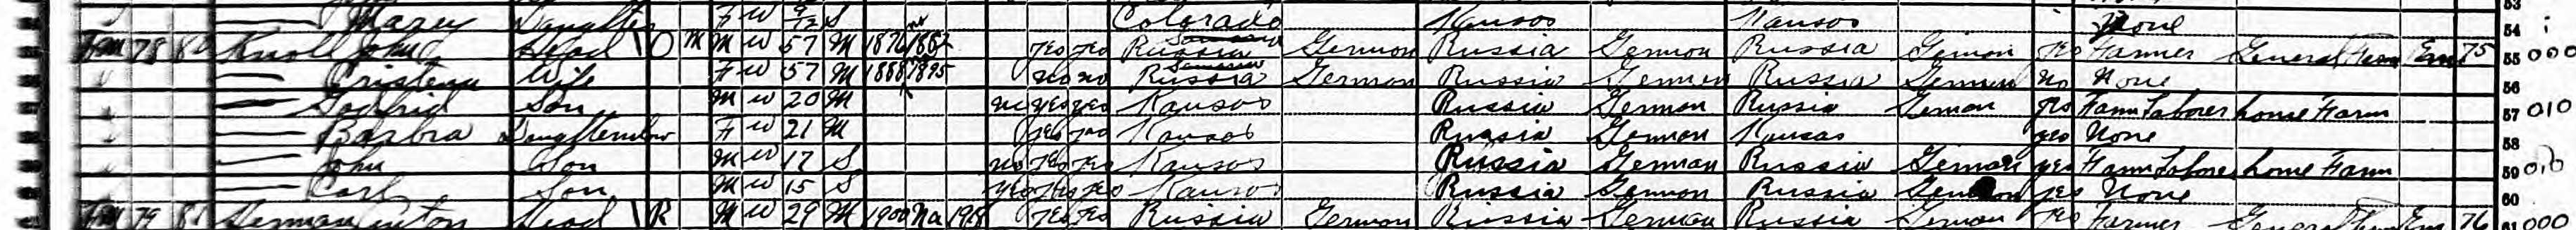 Marey Daughter F W 9/12 S Colorado Kansas Kansas None
Fm 78 8 Knoll John Head 1 O M M W 57 M 1876 1882 yes yes Russia German Russia German Russia German yes Farmer General Farm Em 75 55 000
— Cristena Wife F W 57 M 1888 1895 no no Russia German Russia German Russia German no None 56
— Son M W 20 M no yes yes Kansas Russia German Russia German yes Farm Laborer home Farm 57 010
— Barbra Daughterinlaw F W 21 M yes yes Kansas Russia German Kansas yes None 58
— John Son M W 17 S no yes yes Kansas Russia German Russia German yes Farm Laborer home Farm 59 010
— Carl Son M W 15 S yes yes yes Kansas Russia German Russia German yes None 60
Fm 79 8 Herman Anton Head 1 R M W 29 M 1900 Na 1908 yes yes Russia German Russia German Russia German yes Farmer General Farm Em 76 61 000